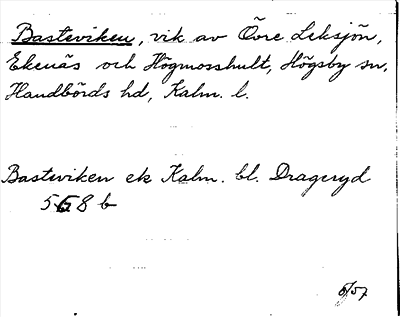 Basteviken, vik av Övre Leksjön,
Ekenäs och Högmosshult, Högsby sn,
Handbörds hd, Kalm. l.
Basteviken ek Kalm. bl. Drageryd
568 b
6/57